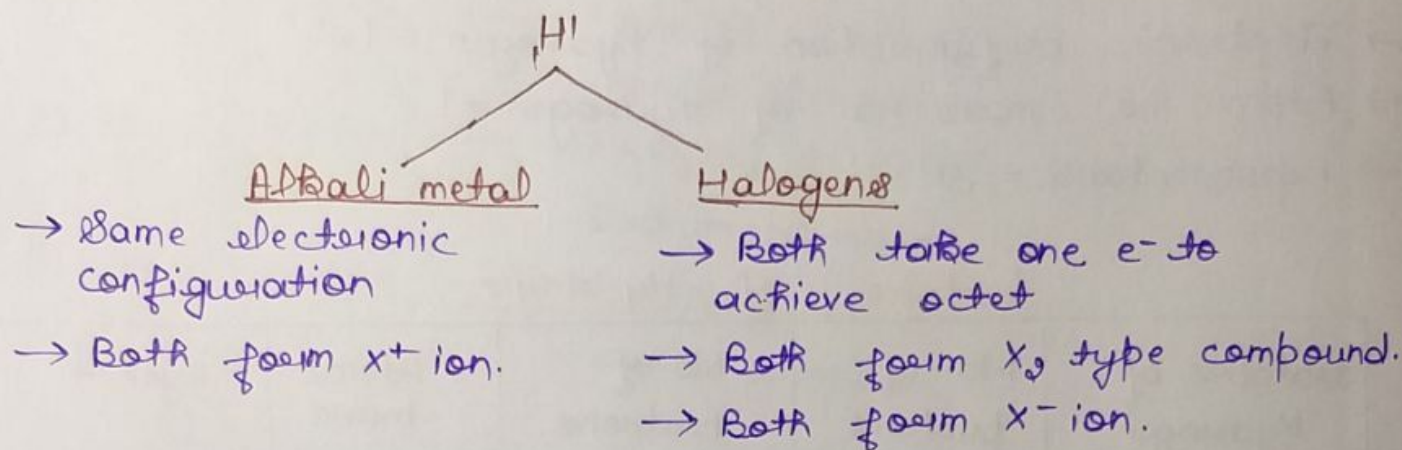 ₁H¹
Alkali metal
Halogens
→ Same electronic
configuration
→ Both form x⁺ ion.
→ Both take one e⁻ to
achieve octet
→ Both form X₂ type compound.
→ Both form x⁻ ion.